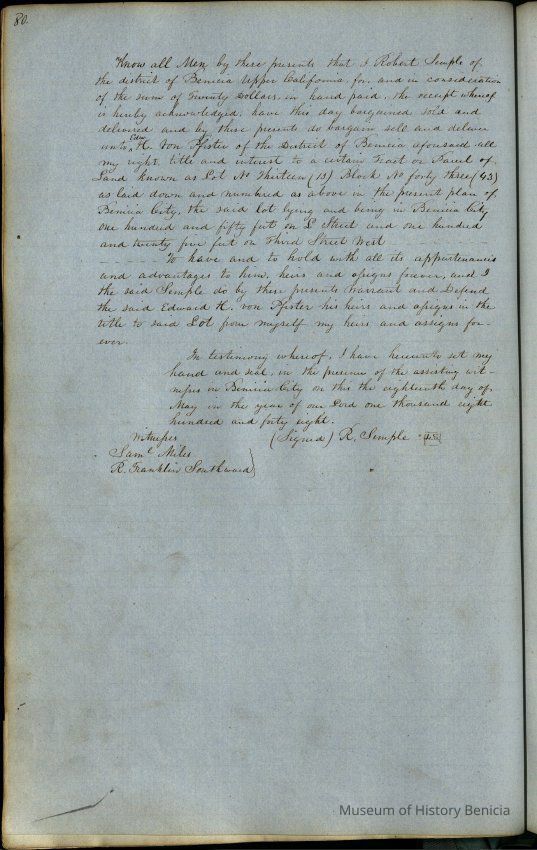 80.
Know all Men by these presents that I Robert Semple of
the district of Benicia Upper California, for, and in consideration
of the sum of Twenty Dollars, in hand paid, the receipt whereof
is hereby acknowledged, have this day bargained sold and
delivered and by these presents do bargain sell and deliver
unto Edw. H. Von Pfister of the District of Benicia aforesaid all
my right, title and interest to a certain Tract or Parcel of
Land known as Lot No Thirteen (13) Block No forty three (43)
as laid down and numbered as above in the present plan of
Benicia City, the said lot lying and being in Benicia City
one hundred and fifty feet on Street and one hundred
and twenty five feet on Third Street West
To have and to hold with all its appurtenances
and advantages to him, heirs and assigns forever, and I
the said Semple do by these presents Warrant and Defend
the said Edward H. von Pfister his heirs and assigns in the
title to said Lot from myself my heirs and assigns for-
ever.
In testimony whereof, I have hereunto set my
hand and seal, in the presence of the assisting wit-
nesses in Benicia City on this the eighteenth day of
May in the year of our Lord one thousand eight
hundred and forty eight.
Witnesses (Signed) R. Semple
Saml Miles
R. Franklin Southward
Museum of History Benicia